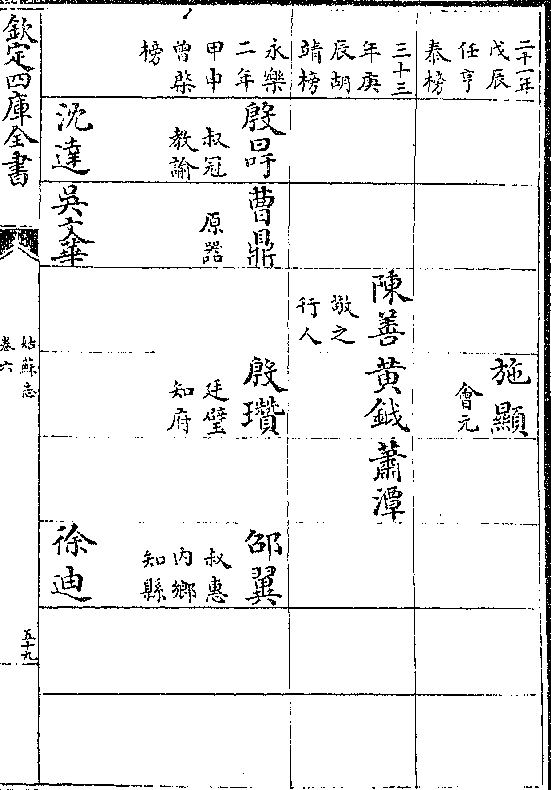 二十一年
戊辰
任亨
泰榜
施顯
會元
三十三
年庚
辰胡
靖榜
陳善
敬之
行人
黄鉞
蕭潭
永樂
二年
甲申
曾棨
榜
殷旹
叔冠
教諭
曹鼎
原器
殷瓚
廷璧
知府
邵翼
叔惠
内鄉
知縣
沈達
吳文華
徐迪
欽定四庫全書
姑蘇志
卷六
五十九